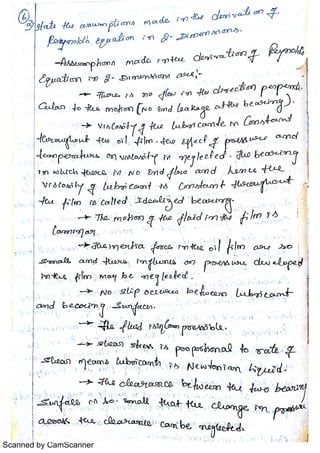 6)
a) State the assumptions made in the derivation of
Reynolds Equation in 2-Dimensions.
Assumptions made in the derivation of Reynolds
Equation in 2-Dimensions are;-
→ There is no flow in the direction perpendi-
cular to the motion (No End leakage at the bearing).
→ Viscosity of the lubricant is Constant
throughout the oil film. the effect of pressure and
temperature on viscosity is neglected. The bearing
in which there is no End flow and hence the
viscosity of lubricant is Constant throughout
the film is called Idealized bearing.
→ The motion of the fluid in the film is
Laminar.
→ The inertia force in the oil film are so
small and there influence on pressure developed
in the film may be neglected.
→ No slip occurs between lubricant
and bearing Surfaces.
→ The fluid is incompressible.
→ shear stress is proportional to rate of
shear means lubricants is Newtonian liquid.
→ The clearance between the two bearing
Surfaces is so small that the change in pressure
across the clearance can be neglected.
Scanned by CamScanner